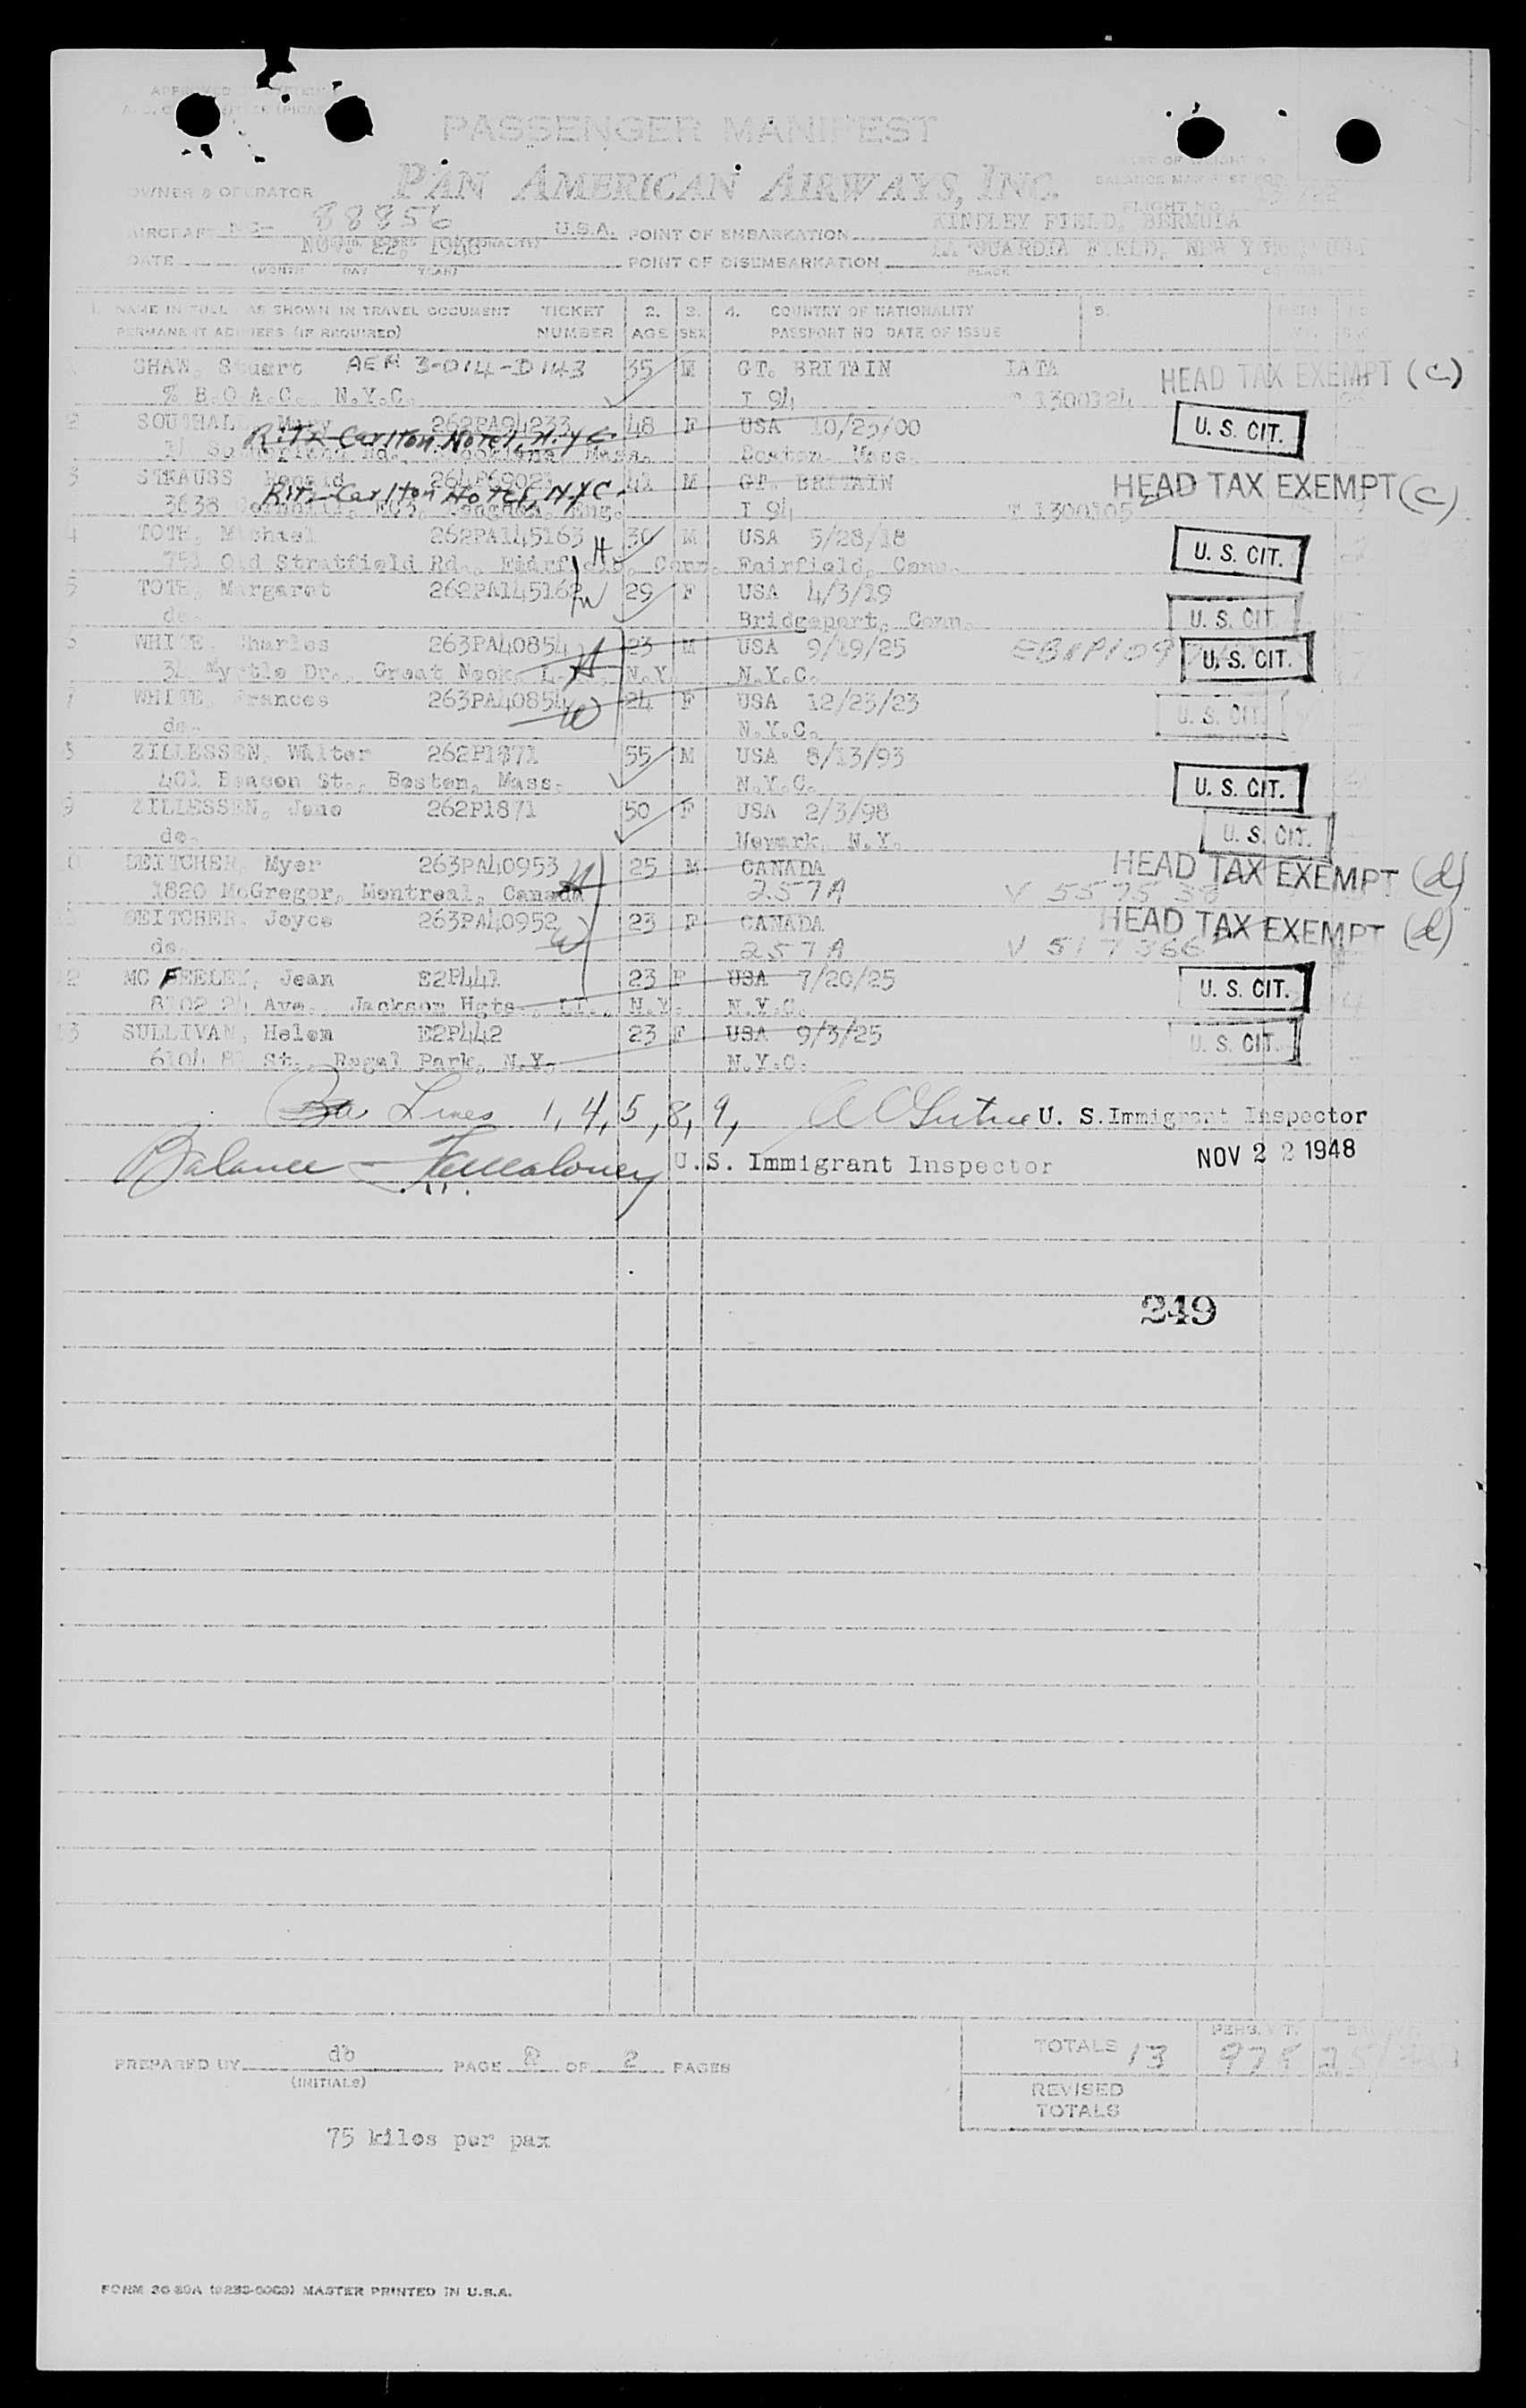 PASSENGER MANIFEST
OWNER & OPERATOR PAN AMERICAN AIRWAYS, INC.
AIRCRAFT NC- 88856 U.S.A. POINT OF EMBARKATION KINDLEY FIELD, BERMUDA FLIGHT NO.
DATE NOV. 22, 1948 POINT OF DISEMBARKATION LA GUARDIA FIELD, NEW YORK, USA
(MONTH DAY YEAR) PLACE
1. NAME IN FULL AS SHOWN IN TRAVEL DOCUMENT TICKET 2. 3. 4. COUNTRY OF NATIONALITY 5.
PERMANENT ADDRESS (IF REQUIRED) NUMBER AGE SEX PASSPORT NO. DATE OF ISSUE
SHAW, Stuart AEH 3-014-D143 35 M GT. BRITAIN IATA HEAD TAX EXEMPT (c)
% B.O.A.C. N.Y.C. I 94 T 1300124
2 SOUTHALL Mary 262PA94233 48 F USA 10/25/00 U. S. CIT.
Ritz Carlton Hotel, N.Y.C.
Rd., Mass. Boston, Mass.
3 STRAUSS 264P69023 41 M GT. BRITAIN HEAD TAX EXEMPT (c)
Ritz-Carlton Hotel, N.Y.C.
3638 Eng. I 94 T 1300105
4 TOTH, Michael 262PA145163 H 30 M USA 5/28/18 U. S. CIT.
751 Old Stratfield Rd., Fairfield, Conn. Fairfield, Conn.
5 TOTH, Margaret 262PA145162 W 29 F USA 4/3/19 U. S. CIT.
do- Bridgeport, Conn.
6 WHITE, Charles 263PA40854 H 23 M USA 9/19/25 U. S. CIT.
34 Myrtle Dr., Great Neck, L.I., N.Y. N.Y.C.
7 WHITE, Frances 263PA40854 W 24 F USA 12/23/23 U. S. CIT.
do- N.Y.C.
8 ZILLESSEN, Walter 262P1871 55 M USA 8/13/93 U. S. CIT.
401 Beacon St., Boston, Mass. N.Y.C.
9 ZILLESSEN, Jane 262P1871 50 F USA 2/3/98 U. S. CIT.
do- Newark, N.Y.
10 DEITCHER, Myer 263PA40953 H 25 M CANADA HEAD TAX EXEMPT (d)
1820 McGregor, Montreal, Canada 257A V 557538
DEITCHER, Joyce 263PA40952 W 23 F CANADA HEAD TAX EXEMPT (d)
do- 257A V 517366
12 MC FEELEY, Jean E2P441 23 F USA 7/20/25 U. S. CIT.
8102 24 Ave., Jackson Hgts., LI., N.Y. N.Y.C.
13 SULLIVAN, Helen E2P442 23 F USA 9/3/25 U. S. CIT.
St., Regal Park, N.Y. N.Y.C.
Lines 1, 4, 5, 8, 9, U. S. Immigrant Inspector
Balance - U.S. Immigrant Inspector NOV 22 1948
249
PREPARED BY db PAGE 2 OF 2 PAGES TOTALS 13 975
(INITIALS)
REVISED
TOTALS
75 kilos per pax
FORM 30-80A MASTER PRINTED IN U.S.A.